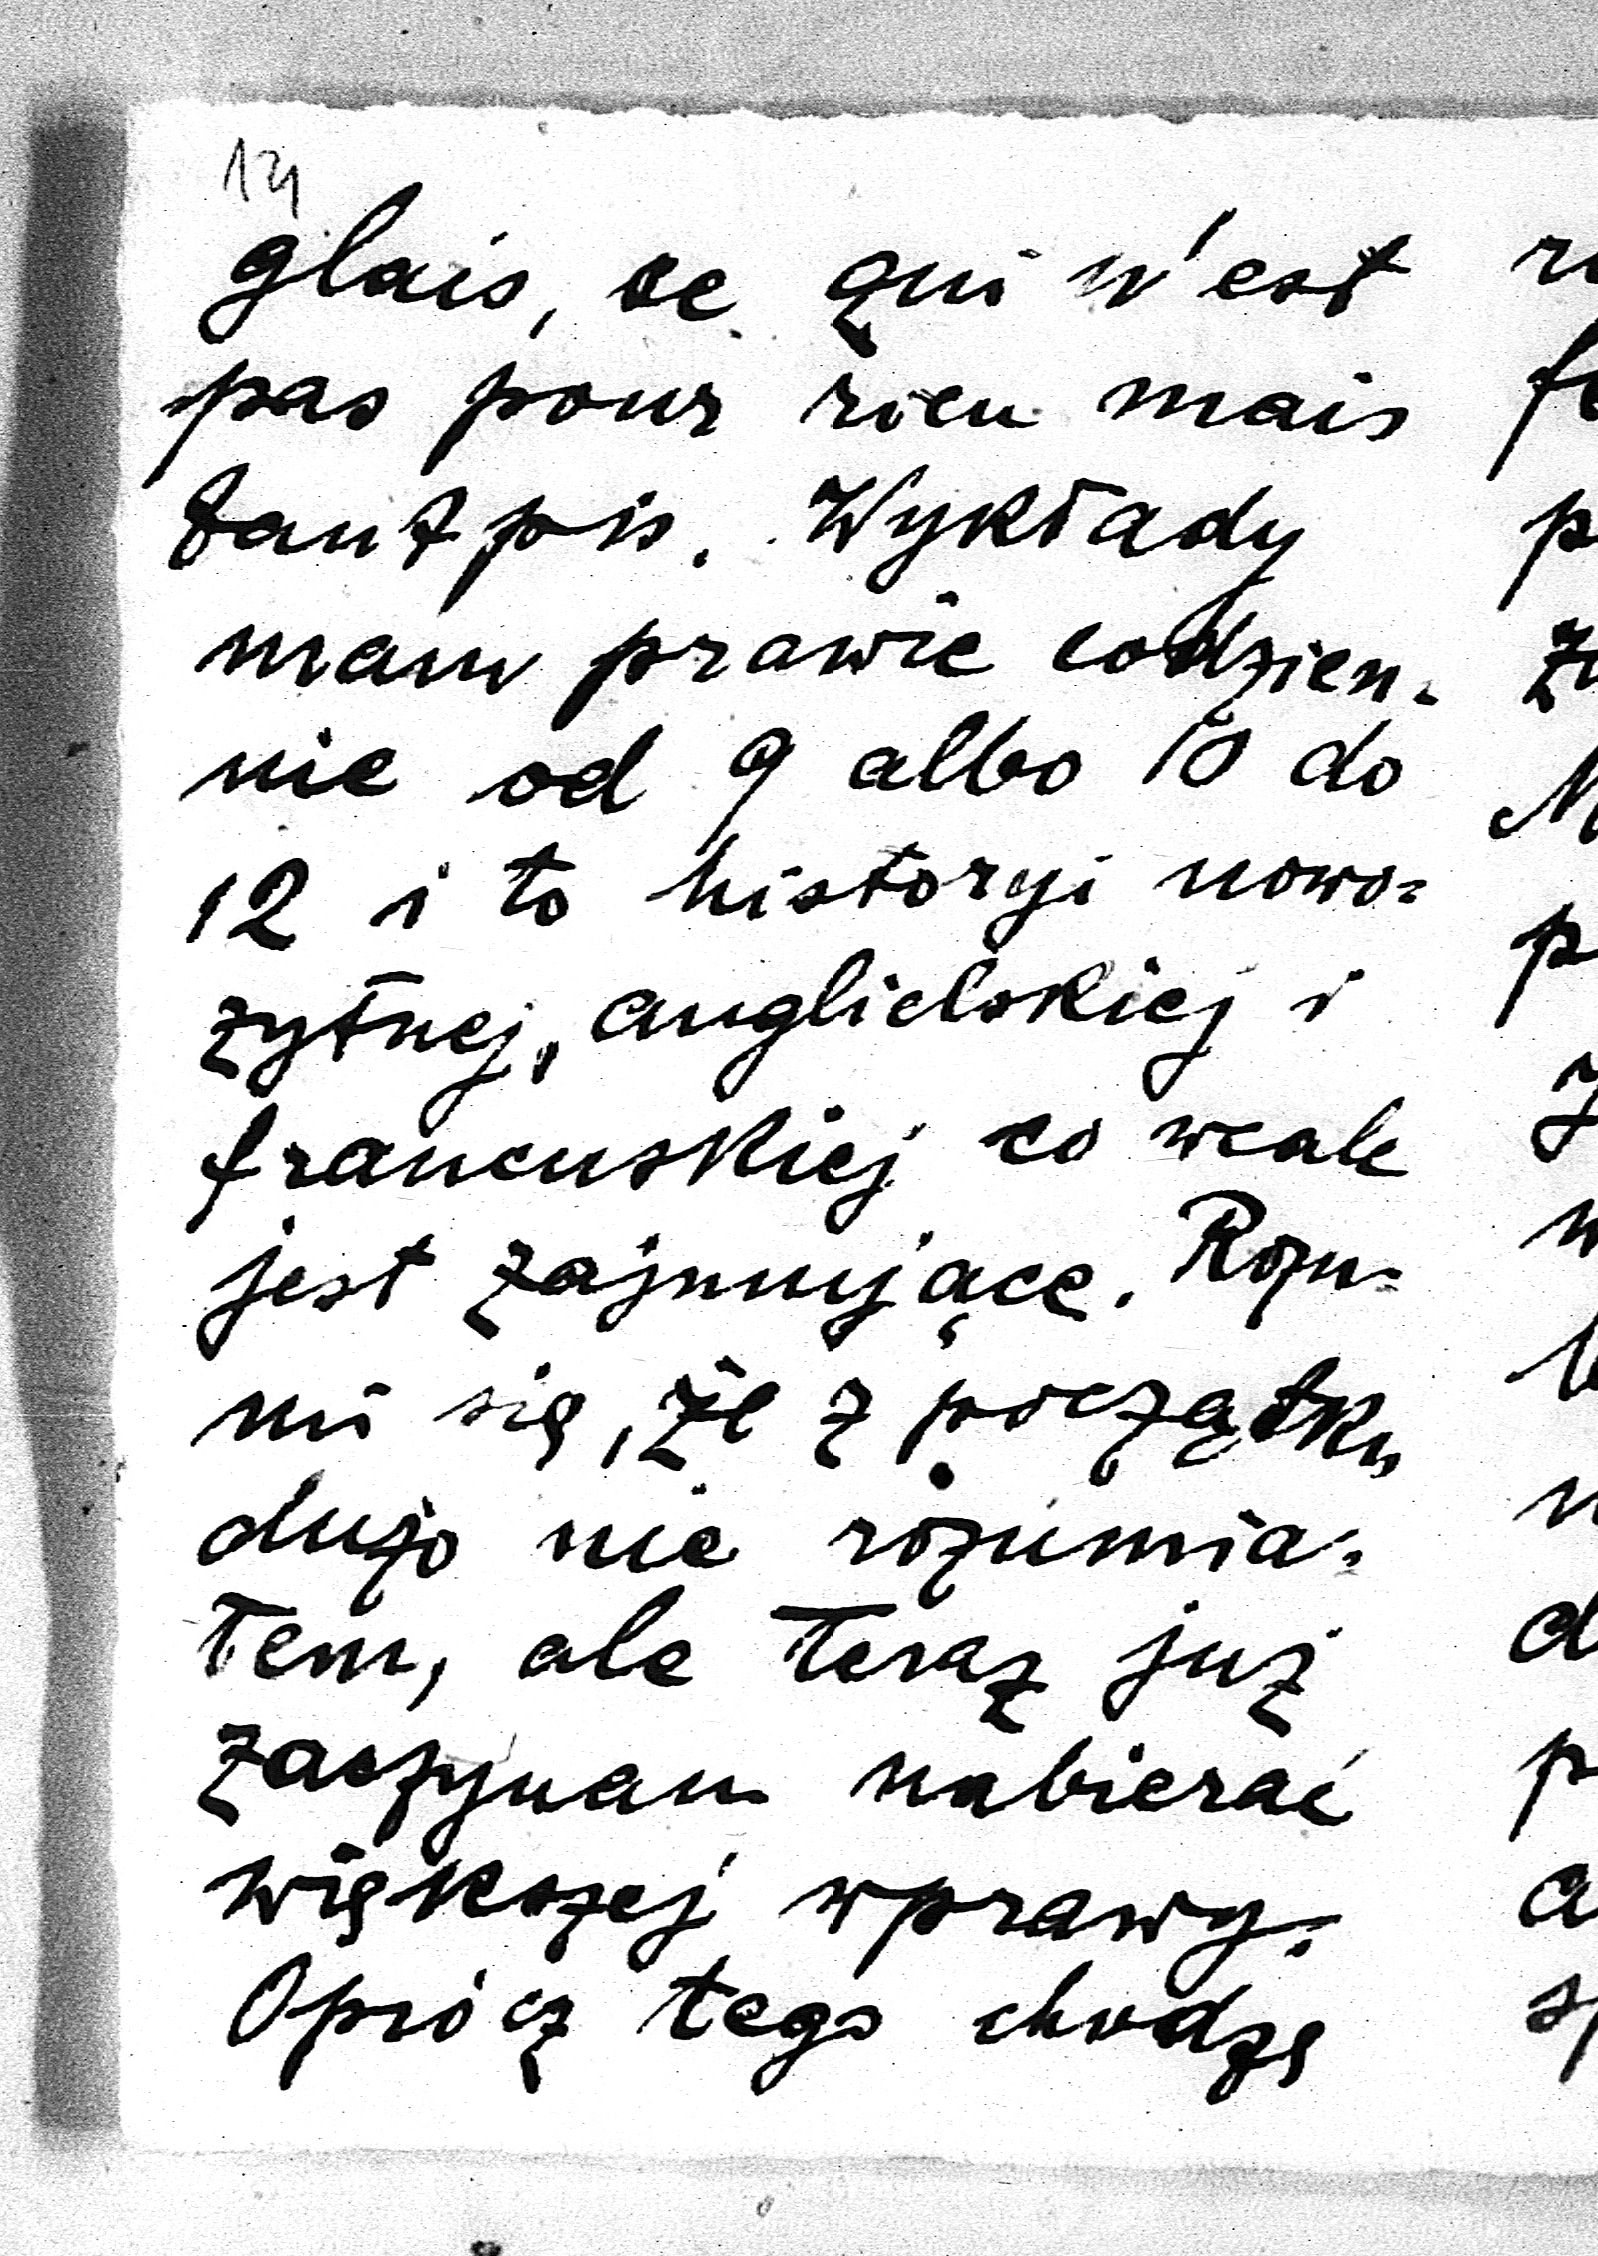 14
glais, ce qui n'est
pas pour rien mais
tant pis. Wykłady
mam prawie codzien-
nie od 9 albo 10 do
12 i to historyi nowo=
zytnej, anglielskiej i
francuskiej co wcale
jest zajmujące. Rozu=
mi się, że z początku
dużo nie rozumia=
łem, ale teraz już
zaczynam nabierać
większej wprawy.
Oprócz tego chodzę